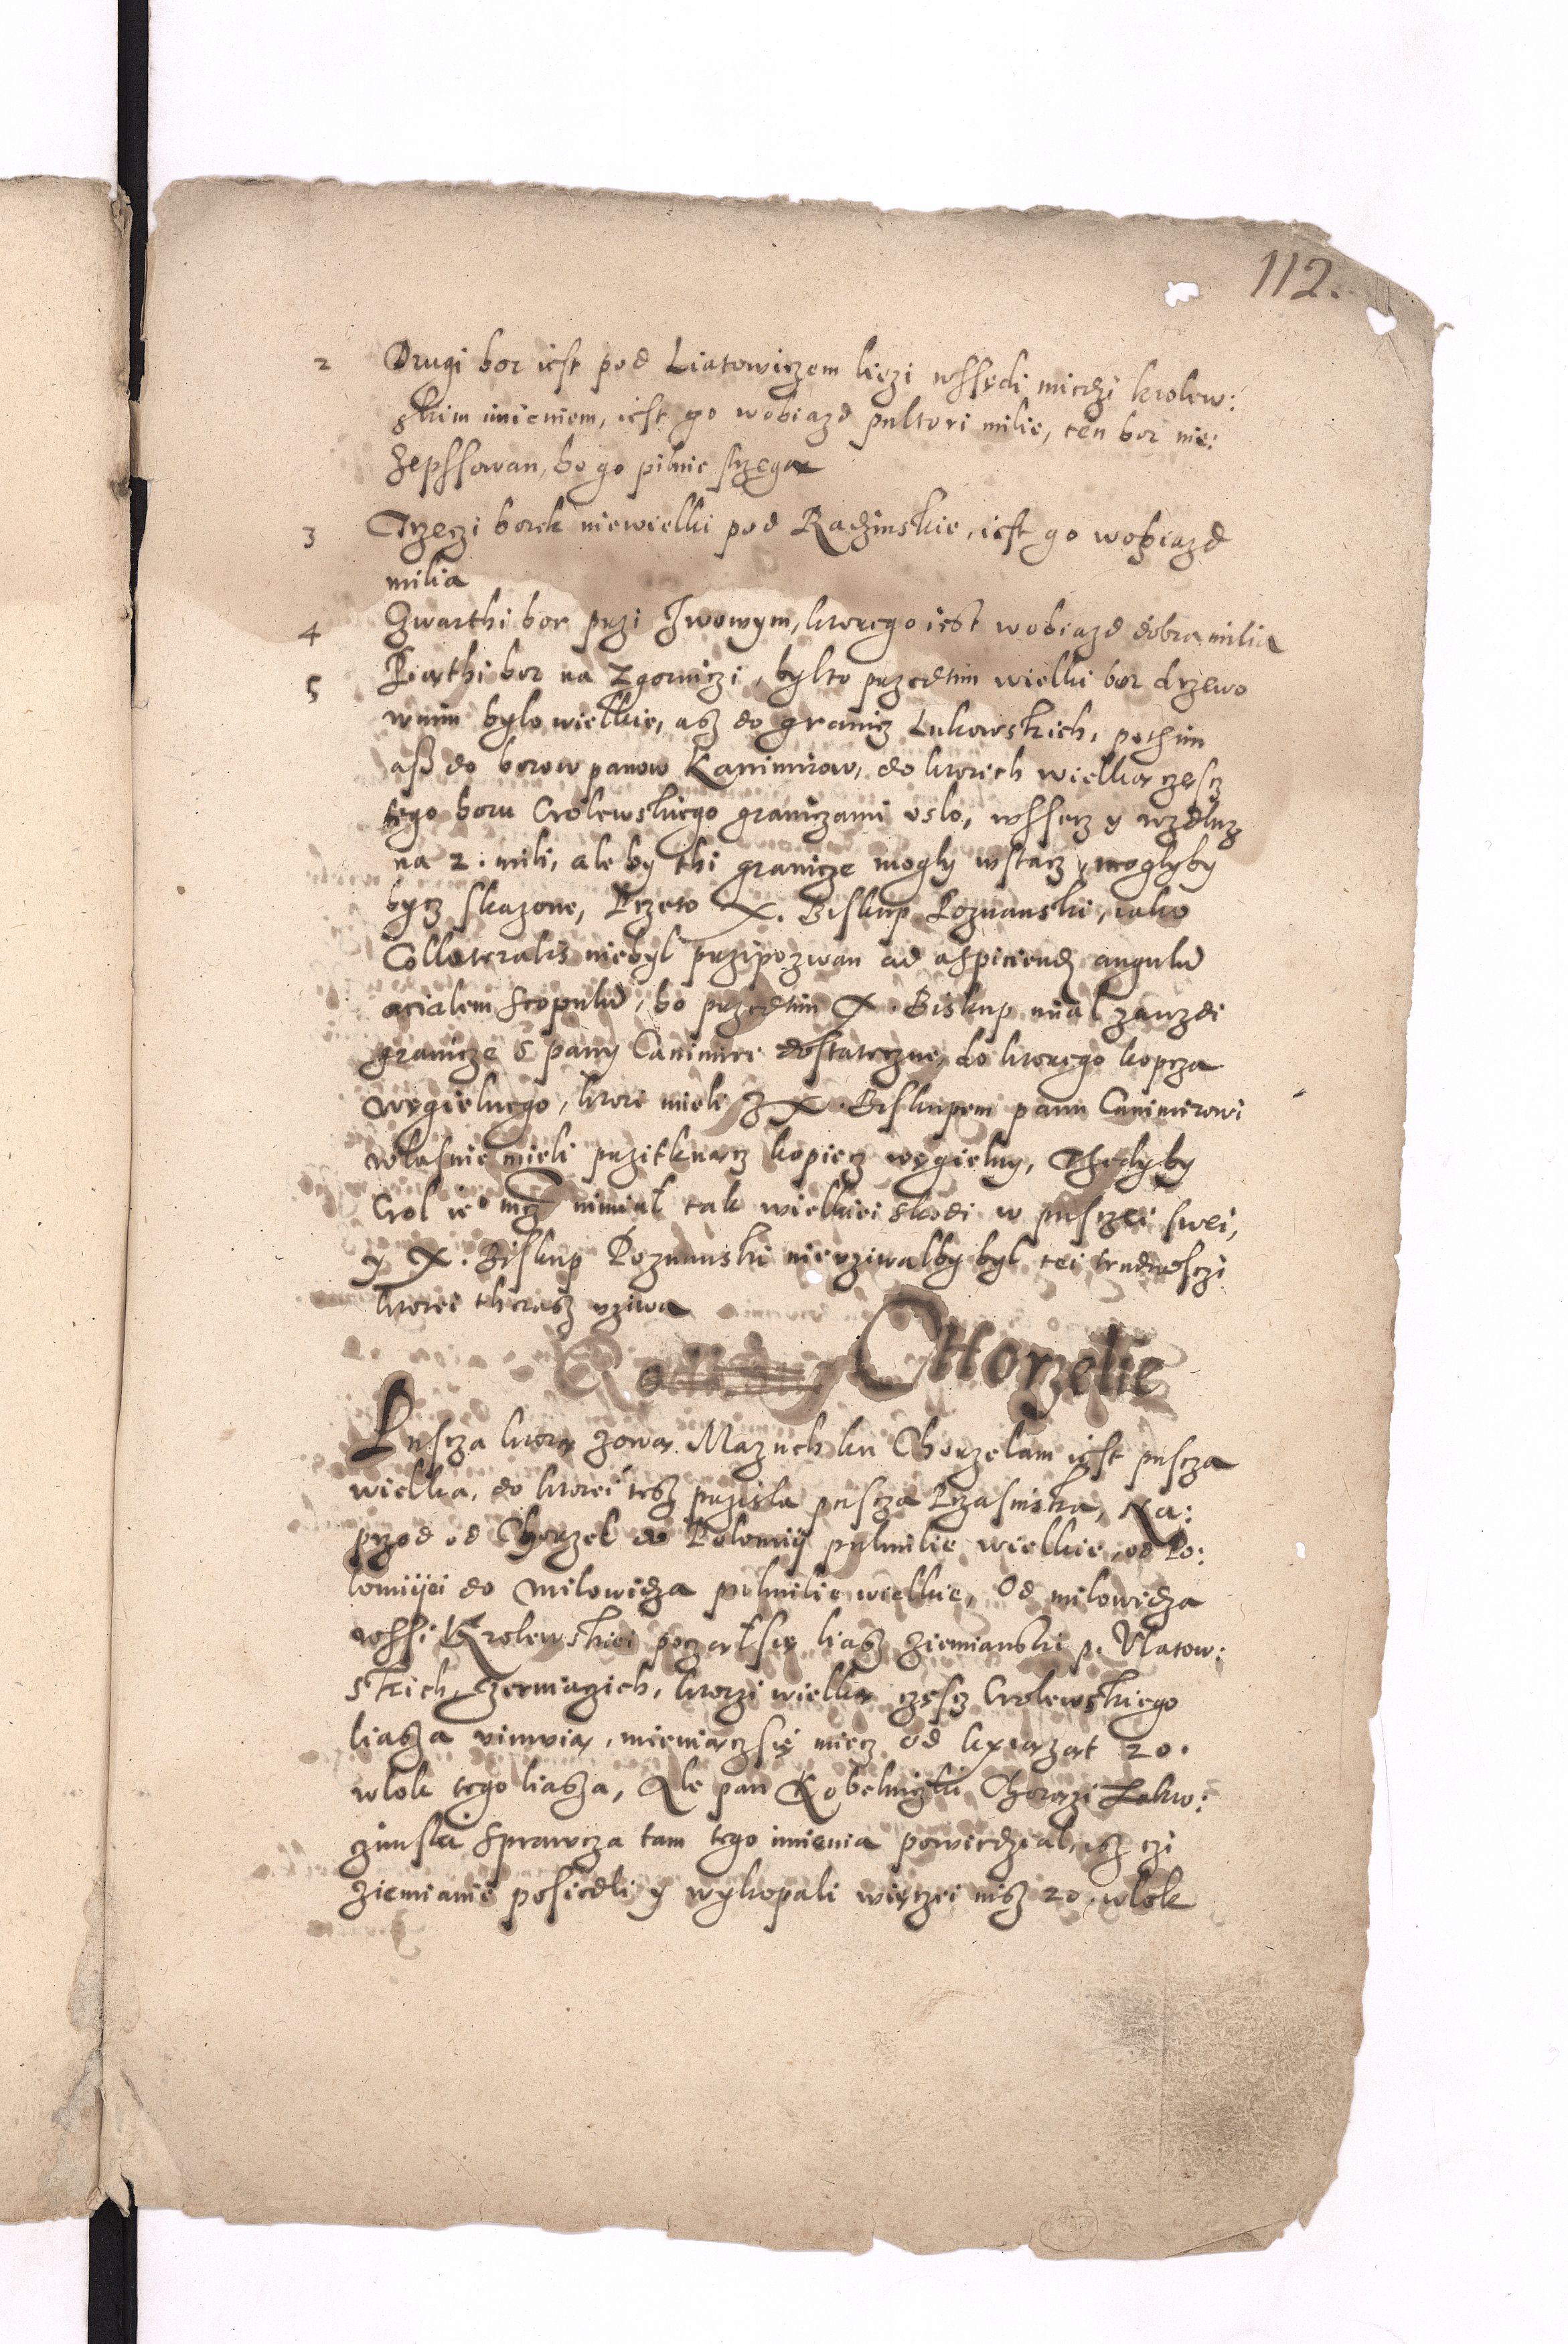 112.
2 Drugi bor iest pod Liatowiczem liezi wssędi miedzi krolew:
skim imieniem, iest go wobiazd pultori milie, ten bor nie:
zepssowan, bo go pilnie strzegą
3 Trzeczi borek niewielki pod Radzinskie, iest go wobiazd
milia
4 Czwarthi bor przi Iwowym, ktorego iest wobiazd dobra milia
5 Piąthi bor na Zgorniczi, bylto przedtim wielki bor drzewo
wnim bylo wielkie, asz do granicz Lukowskich, pothim
asz do borow panow Kazimirow, do ktorich wielka częscz
tego boru Crolewskiego graniczami uslo, wsserz y wzdluz
na 2. mili, ale by thi granicze mogly wstacz y moglyby
bycz skazone, Przeto X. Biskup Poznanski, iako
Collateralis niebyl przipozwan ad aspiciend angulu
acialem scopulu, bo przedtim X. Biskup mial zawzdi
granicze s pany Canimiri dostateczne, do ktorego kopcza
węgielnego, ktori mieli z X. Biskupem panu Canimirowi
wlasnie mieli przitknącz kopiecz węgielny, Thedyby
Crol ie° mcz nimial tak wielkiei skodi w pusczei swei,
y X. Biskup Poznanski nieuziwalby byl tei trudnosczi
ktorei therasz uziwa
CHorzelie
Puscza ktorą zową Mazuch ku Chorzelam iest puscza
wielka, do ktorei tesz przisla puscza Przasniska, Na:
przod od Chorzel do Polomiÿ pulmilie wielkie, od Po:
lomiÿei do Milowidza pulmilie wielkie, Od milowidza
wssi Krolewskiei począl się liasz ziemianski p. Ulatow:
skich, Czerniągich, ktorzi wielką częscz Crolewskiego
liasza uimuią, mieniączsię miecz od kxiążąt 20.
wlok tego liasza, Ale pan Kobelniczki Chorązi Zakro:
czimski Sprawcza tam tego imienia powiedzial, isz czi
ziemianie posiedli y wykopali więczei nisz 20. wlok